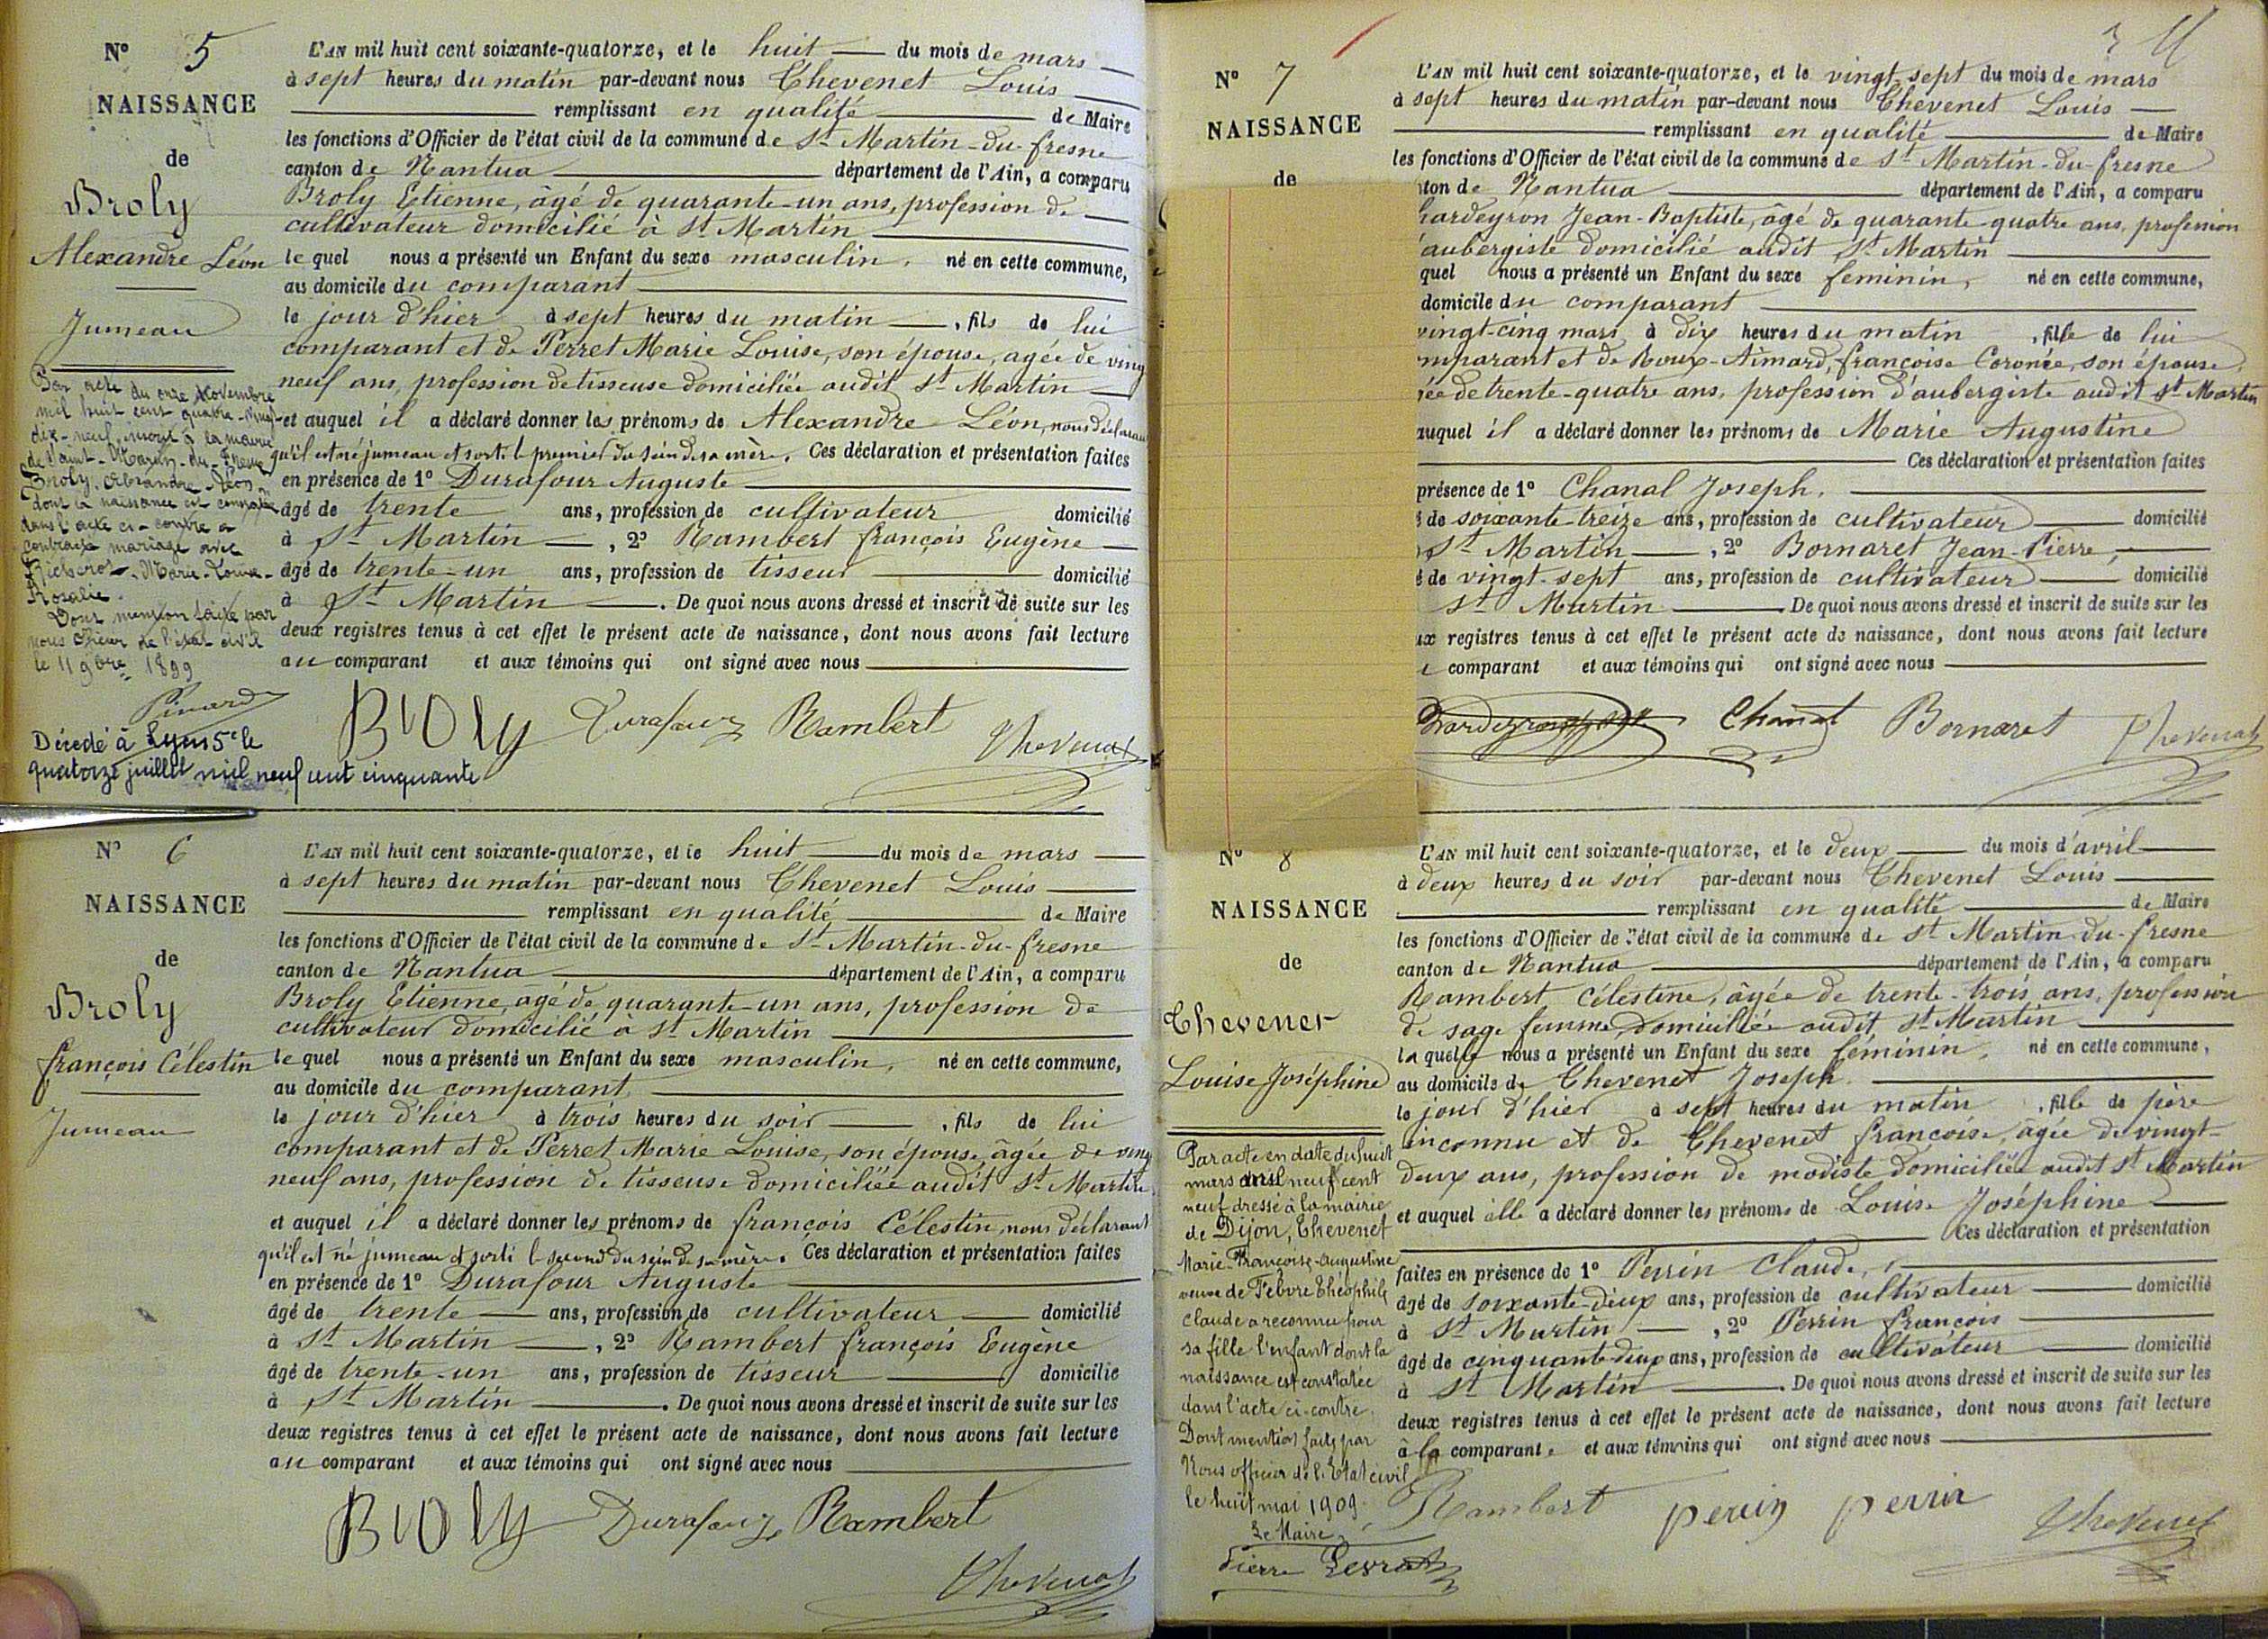 N° 5
NAISSANCE
de
Broly
Alexandre Léon
Jumeau
Par acte du onze Novembre
mil huit cent quatre-vingt-
dix-neuf, inscrit à la mairie
de Saint-Martin-du-Fresne
Broly Alexandre-Léon
dont la naissance est constatée
dans l'acte ci-contre a
contracté mariage avec
Marie-Louise-
Rosalie.
Dont mention faite par
nous officier de l'état civil
le 11 9bre 1899
Pinard
Décedé à Lyon 5e le
quatorze juillet mil neuf cent cinquante
L'AN mil huit cent soixante-quatorze, et le huit du mois de mars
à sept heures du matin par-devant nous Chevenet Louis
remplissant en qualité de Maire
les fonctions d'Officier de l'état civil de la commune de St Martin-du-fresne
canton de Nantua département de l'Ain, a comparu
Broly Etienne, âgé de quarante-un ans, profession de
cultivateur domicilié à St Martin
le quel nous a présenté un Enfant du sexe masculin, né en cette commune,
au domicile du comparant
le jour d'hier à sept heures du matin, fils de lui
comparant et de Perret Marie Louise, son épouse, agée de ving
neuf ans, profession de tisseuse domiciliée audit St Martin
et auquel il a déclaré donner les prénoms de Alexandre Léon, nous déclarant
qu'il est né jumeau et sorti le premier du sein de sa mère. Ces déclaration et présentation faites
en présence de 1° Durafour Auguste
âgé de trente ans, profession de cultivateur domicilié
à St Martin, 2° Rambert françois Eugène
âgé de trente-un ans, profession de tisseur domicilié
à St Martin. De quoi nous avons dressé et inscrit de suite sur les
deux registres tenus à cet effet le présent acte de naissance, dont nous avons fait lecture
au comparant et aux témoins qui ont signé avec nous
Broly Durafour Rambert
Chevenet
N° 6
NAISSANCE
de
Broly
françois Célestin
Jumeau
L'AN mil huit cent soixante-quatorze, et le huit du mois de mars
à sept heures du matin par-devant nous Chevenet Louis
remplissant en qualité de Maire
les fonctions d'Officier de l'état civil de la commune de St Martin-du-fresne
canton de Nantua département de l'Ain, a comparu
Broly Etienne, âgé de quarante-un ans, profession de
cultivateur domicilié à St Martin
le quel nous a présenté un Enfant du sexe masculin, né en cette commune,
au domicile du comparant
le jour d'hier à trois heures du soir, fils de lui
comparant et de Perret Marie Louise, son épouse, âgée de ving
neuf ans, profession de tisseuse domiciliée audit St Martin,
et auquel il a déclaré donner les prénoms de françois Célestin, nous déclarant
qu'il est né jumeau et sorti le second du sein de sa mère. Ces déclaration et présentation faites
en présence de 1° Durafour Auguste
âgé de trente ans, profession de cultivateur domicilié
à St Martin, 2° Rambert françois Eugène
âgé de trente-un ans, profession de tisseur domicilié
à St Martin. De quoi nous avons dressé et inscrit de suite sur les
deux registres tenus à cet effet le présent acte de naissance, dont nous avons fait lecture
au comparant et aux témoins qui ont signé avec nous
Broly Durafour Rambert
Chevenet
N° 7
NAISSANCE
de
L'AN mil huit cent soixante-quatorze, et le vingt-sept du mois de mars
à sept heures du matin par-devant nous Chevenet Louis
remplissant en qualité de Maire
les fonctions d'Officier de l'état civil de la commune de St Martin-du-fresne
ton de Nantua département de l'Ain, a comparu
hardeyron Jean-Baptiste, âgé de quarante-quatre ans, profession
'aubergiste domicilié audit St Martin
quel nous a présenté un Enfant du sexe feminin, né en cette commune,
domicile du comparant
vingt-cinq mars à dix heures du matin, fille de lui
mparant et de Roux-Aimard, françoise Coronée, son épouse,
ée de trente-quatre ans, profession d'aubergiste audit St Martin
auquel il a déclaré donner les prénoms de Marie Augustine
Ces déclaration et présentation faites
présence de 1° Chanal Joseph,
é de soixante-treize ans, profession de cultivateur domicilié
St Martin, 2° Bornaret Jean-Pierre,
é de vingt-sept ans, profession de cultivateur domicilié
St Martin. De quoi nous avons dressé et inscrit de suite sur les
ux registres tenus à cet effet le présent acte de naissance, dont nous avons fait lecture
comparant et aux témoins qui ont signé avec nous
Chanal Bornaret Chevenet
N° 8
NAISSANCE
de
Chevenet
Louise Joséphine
Par acte en date du huit
mars mil neuf cent
neuf dressé à la mairie
de Dijon, Chevenet
Marie-Françoise-Augustine
veuve de Febvre Théophile
Claude a reconnu pour
sa fille l'enfant dont la
naissance est constatée
dans l'acte ci-contre.
Dont mention faite par
Nous officier de l'Etat civil
le huit mai 1909.
Le Maire,
Pierre
L'AN mil huit cent soixante-quatorze, et le deux du mois d'avril
à deux heures du soir par-devant nous Chevenet Louis
remplissant en qualité de Maire
les fonctions d'Officier de l'état civil de la commune de St Martin-du-fresne
canton de Nantua département de l'Ain, a comparu
Rambert Célestine, âgée de trente-trois ans, profession
de sage femme, domiciliée audit St Martin
la quelle nous a présenté un Enfant du sexe féminin, né en cette commune,
au domicile de Chevenet Joseph.
le jour d'hier à sept heures du matin, fille de père
inconnu et de Chevenet françoise, agée de vingt-
deux ans, profession de modiste domiciliée audit St Martin
et auquel elle a déclaré donner les prénoms de Louise Joséphine
Ces déclaration et présentation
faites en présence de 1° Perrin Claude,
âgé de soixante-deux ans, profession de cultivateur domicilié
à St Martin, 2° Perrin françois
âgé de cinquante-deux ans, profession de cultivateur domicilié
à St Martin. De quoi nous avons dressé et inscrit de suite sur les
deux registres tenus à cet effet le présent acte de naissance, dont nous avons fait lecture
à la comparante et aux témoins qui ont signé avec nous
Rambert perrin perrin Chevenet